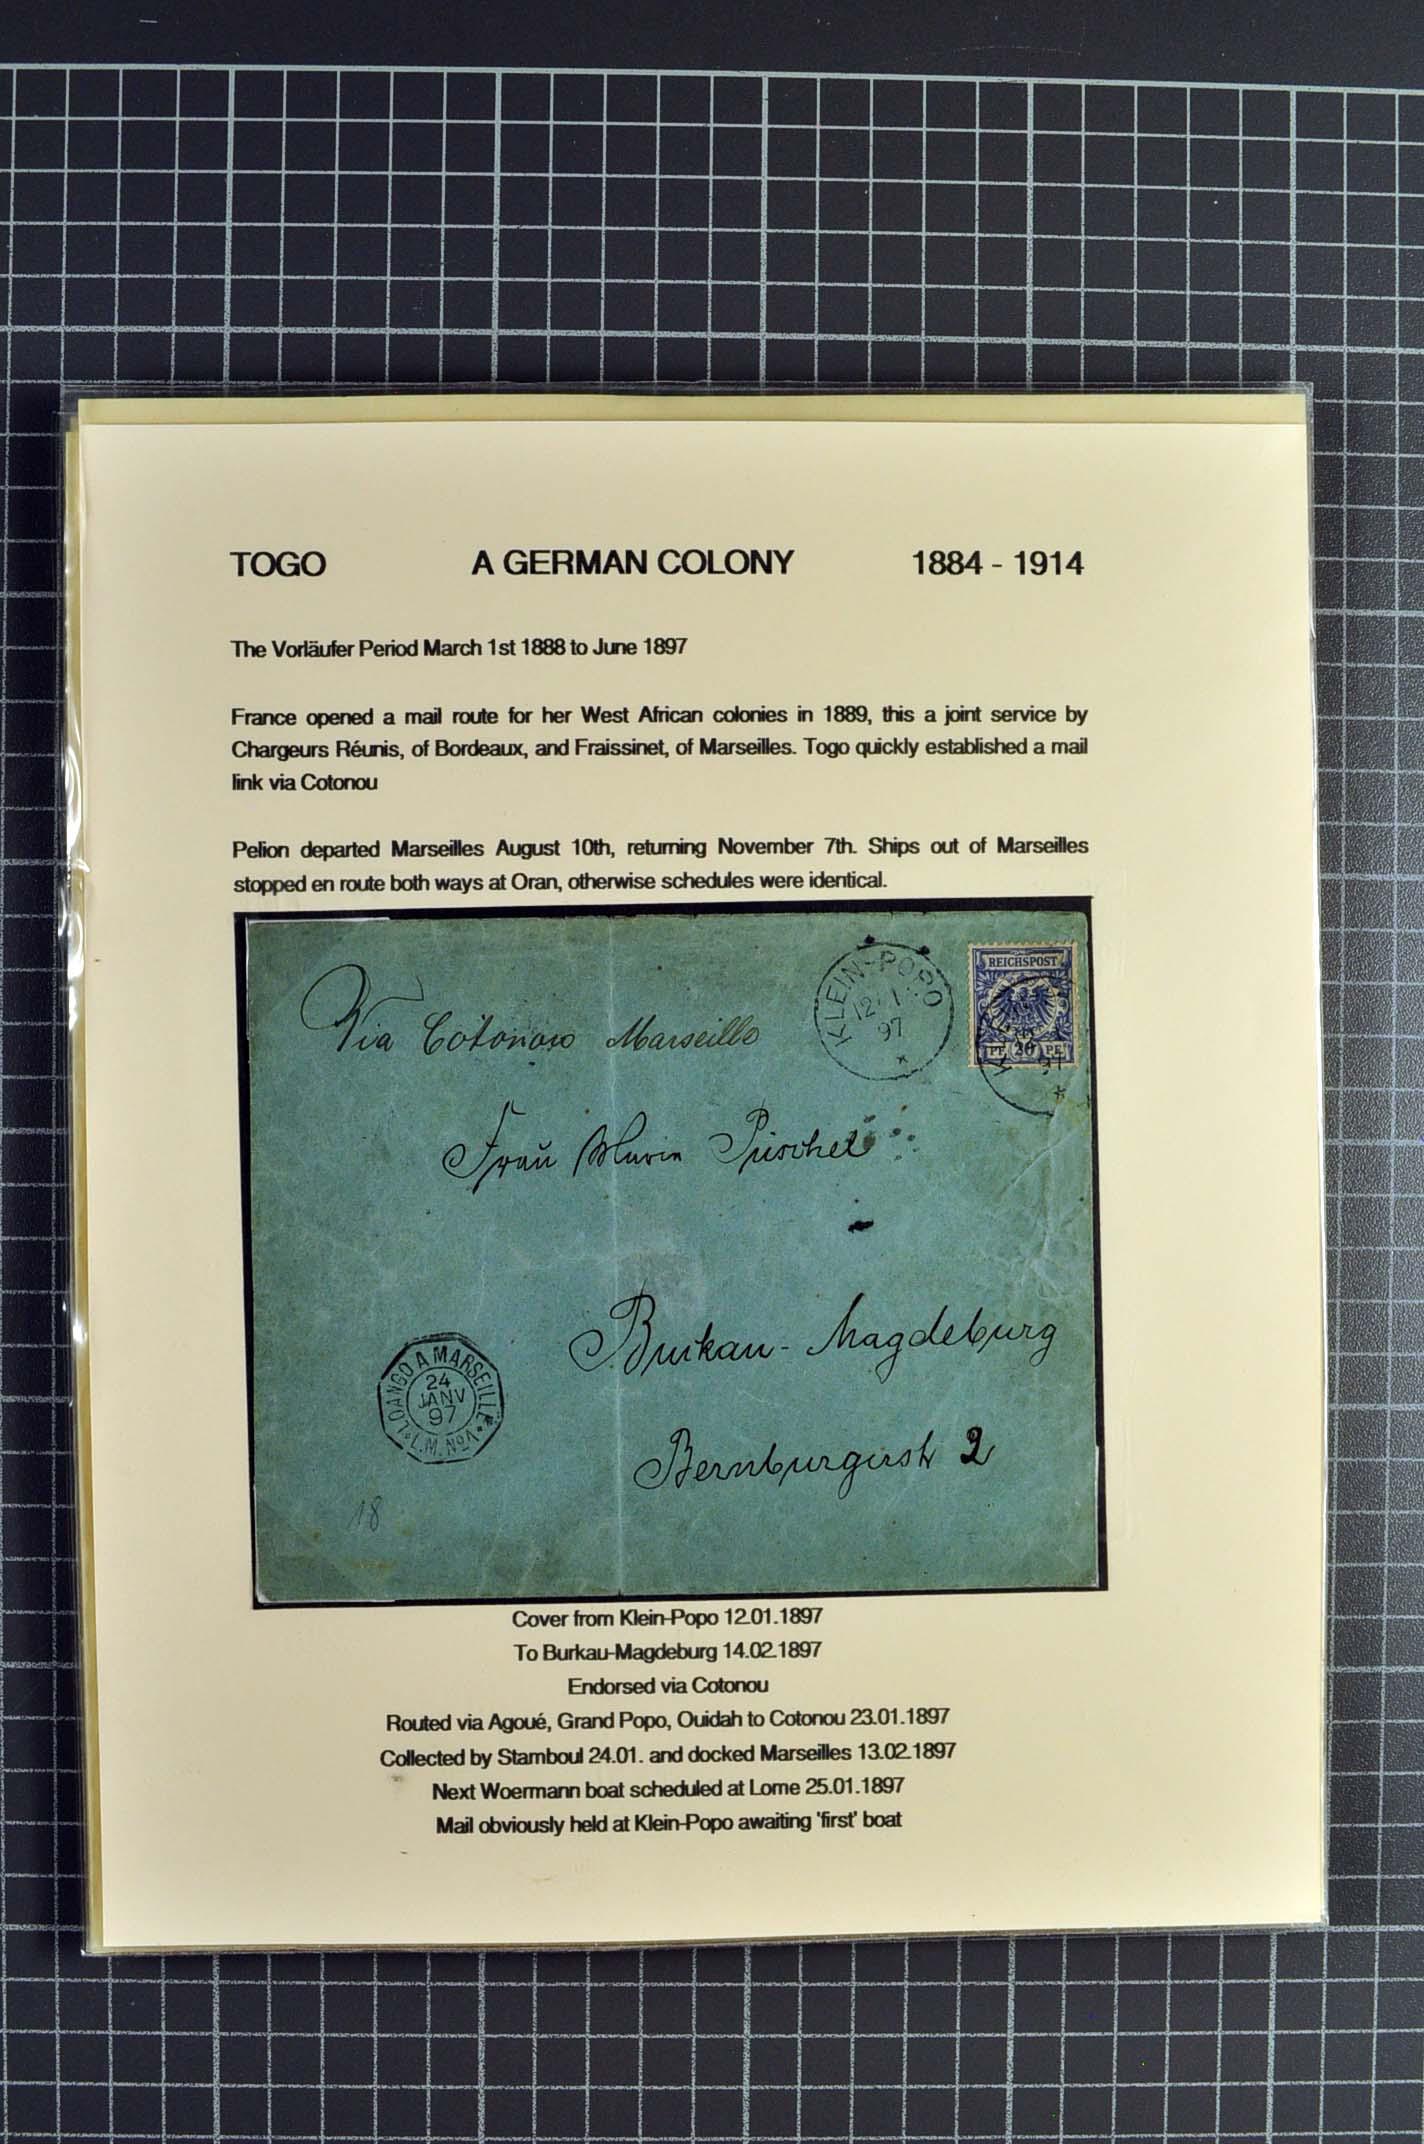 TOGO A GERMAN COLONY 1884 - 1914
The Vorläufer Period March 1st 1888 to June 1897
France opened a mail route for her West African colonies in 1889, this a joint service by
Chargeurs Réunis, of Bordeaux, and Fraissinet, of Marseilles. Togo quickly established a mail
link via Cotonou
Pelion departed Marseilles August 10th, returning November 7th. Ships out of Marseilles
stopped en route both ways at Oran, otherwise schedules were identical.
KLEIN-POPO
12 1
97
REICHSPOST
PF 20 PF
K
97
Via Cotonou Marseille
Frau Marie Püschel
Buckau - Magdeburg
Bernburgerstr 2
LOANGO A MARSEILLE
24
JANV
97
L.M. No1
18
Cover from Klein-Popo 12.01.1897
To Burkau-Magdeburg 14.02.1897
Endorsed via Cotonou
Routed via Agoué, Grand Popo, Ouidah to Cotonou 23.01.1897
Collected by Stamboul 24.01. and docked Marseilles 13.02.1897
Next Woermann boat scheduled at Lome 25.01.1897
Mail obviously held at Klein-Popo awaiting 'first' boat